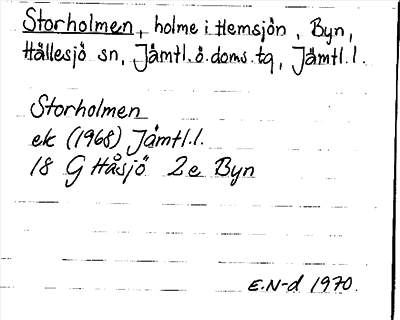 Storholmen, holme i Hemsjön, Byn,
Hällesjö sn, Jämtl.ö.doms.tg, Jämtl.l.
Storholmen
ek (1968) Jämtl.l.
18 G Håsjö 2e Byn
E.N-d 1970.